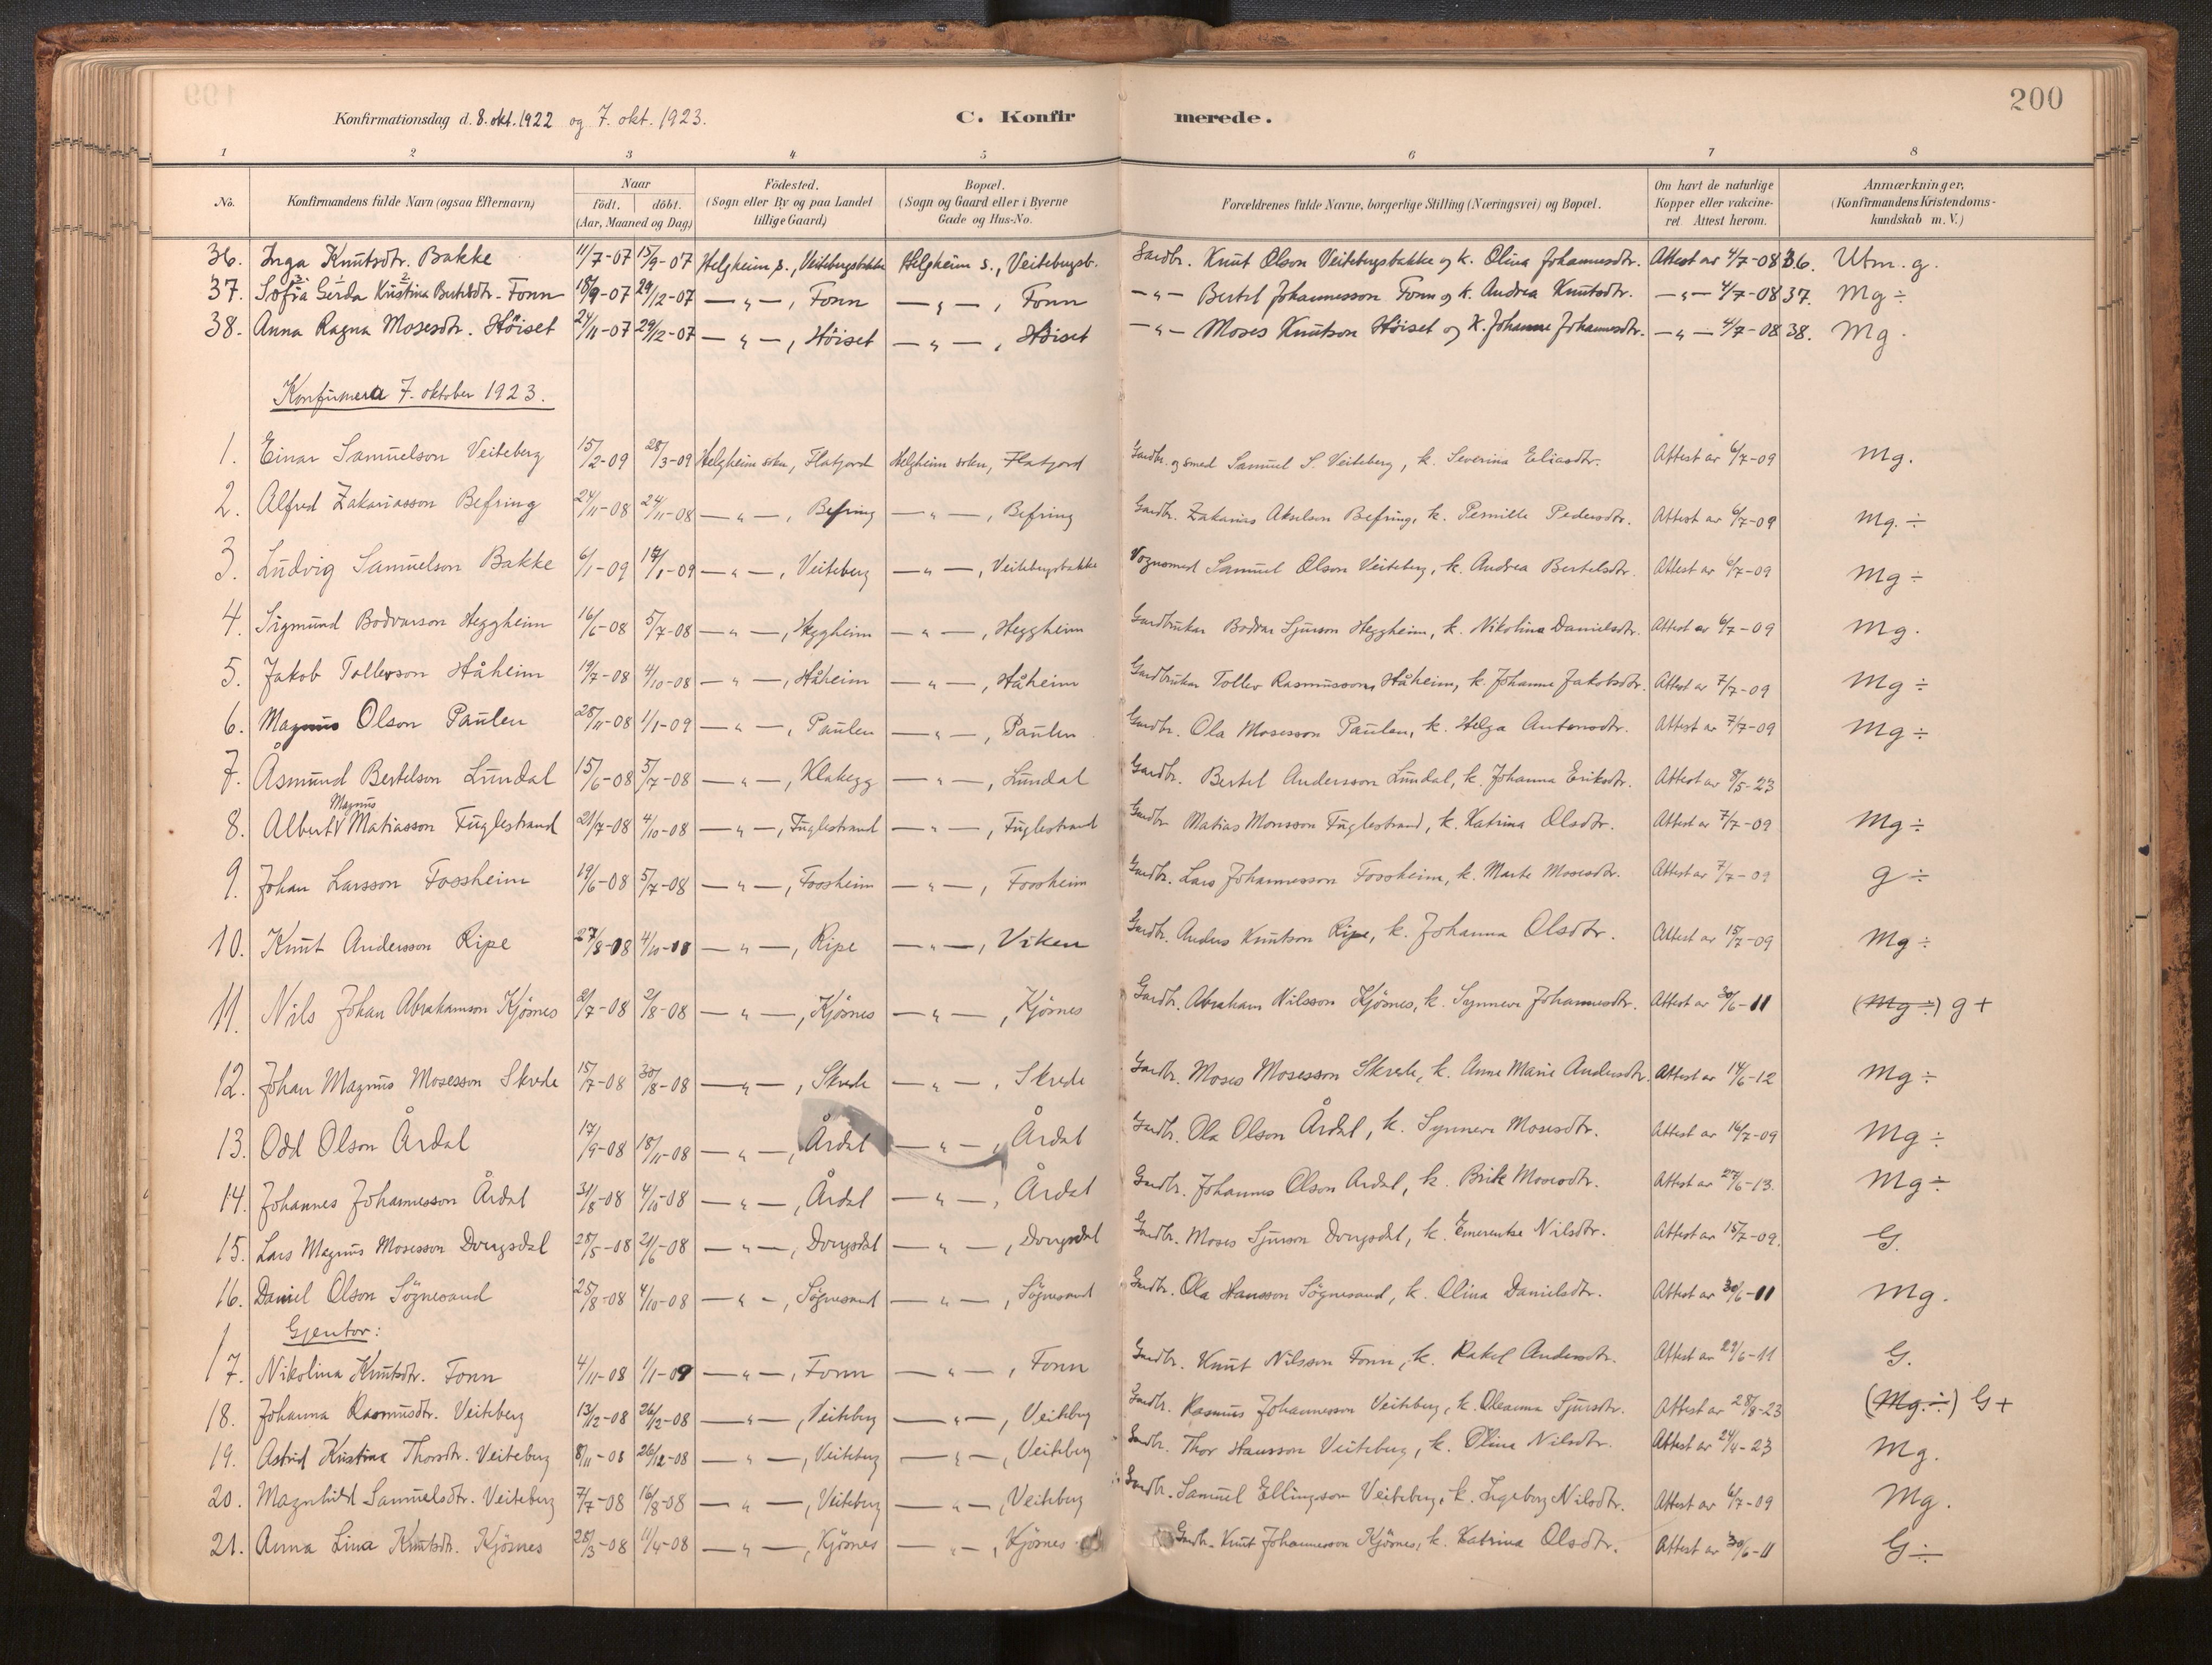 200
Konfirmationsdag d. 8. okt. 1922 og 7. okt. 1923. C. Konfirmerede.
1 2 3 4 5 6 7 8
No. Konfirmandens fulde Navn (ogsaa Efternavn) Naar født. døbt. (Aar, Maaned og Dag) Fødested. (Sogn eller By og paa Landet tillige Gaard) Bopæl. (Sogn og Gaard eller i Byerne Gade og Hus-No. Forældrenes fulde Navne, borgerlige Stilling (Næringsvei) og Bopæl. Om havt de naturlige Kopper eller vaccineret. Attest herom. Anmærkninger, (Konfirmandens Kristendomskundskab m. V.)
36. Inga Knutsdtr. Bakke 11/7-07 15/9-07 Helgheim s., Veitebergsbakke Helgheim s., Veitebergsb. Gardbr. Knut Olson Veitebergsbakke og k. Olina Johannesdtr. Attest av 4/7-08 36. Utm. g.
37. Sofia Gerda Kristina Bertelsdtr. Fonn 18/9-07 29/12-07 — " —, Fonn — " —, Fonn — " — Bertel Johannesson Fonn og k. Andrea Knutsdtr. — " — 4/7-08 37. Mg ÷
38. Anna Ragna Mosesdtr. Höiset 24/11-07 29/12-07 — " —, Höiset — " —, Höiset — " — Moses Knutson Höiset og k. Johanne Johannesdtr. — " — 4/7-08 38. Mg.
Konfirmera 7. oktober 1923.
1. Einar Samuelson Veiteberg 15/2-09 28/3-09 Helgheim sokn, Flatjord Helgheim sokn, Flatjord Gardbr. og smed Samuel S. Veiteberg, k. Severina Eliasdtr. Attest av 6/7-09 Mg.
2. Alfred Zakariasson Befring 24/11-08 24/11-08 — " —, Befring — " —, Befring Gardbr. Zakarias Akselson Befring, k. Pernille Pedersdtr. Attest av 6/7-09 Mg. ÷
3. Ludvig Samuelson Bakke 6/1-09 17/1-09 — " —, Veiteberg — " —, Veitebergsbakke Vognsmed Samuel Olson Veiteberg, k. Andrea Bertelsdtr. Attest av 6/7-09 Mg ÷
4. Sigmund Bodvarson Heggheim 16/6-08 5/7-08 — " —, Heggheim — " —, Heggheim Gardbrukar Bodvar Sjurson Heggheim, k. Nikolina Danielsdtr. Attest av 6/7-09 Mg.
5. Jakob Tollevson Håheim 19/7-08 4/10-08 — " —, Håheim — " —, Håheim Gardbrukar Tollev Rasmusson Håheim, k. Johanne Jakobsdtr. Attest av 7/7-09 Mg ÷
6. Magnus Olson Paulen 28/11-08 1/1-09 — " —, Paulen — " —, Paulen Gardbr. Ola Mosesson Paulen, k. Helga Antonsdtr. Attest av 7/7-09 Mg ÷
7. Åsmund Bertelson Lundal 15/6-08 5/7-08 — " —, Klakegg — " —, Lundal Gardbr. Bertel Andersson Lundal, k. Johanna Eriksdtr. Attest av 8/5-23
8. Albert Magnus Matiasson Fuglestrand 21/7-08 4/10-08 — " —, Fuglestrand — " —, Fuglestrand Gardbr. Matias Monsson Fuglestrand, k. Katrina Olsdtr. Attest av 7/7-09 Mg ÷
9. Johan Larsson Fossheim 19/6-08 5/7-08 — " —, Fossheim — " —, Fossheim Gardbr. Lars Johannesson Fossheim, k. Marte Mosesdtr. Attest av 7/7-09 g ÷
10. Knut Andersson Ripe 27/8-08 4/10-08 — " —, Ripe — " —, Viken Gardbr. Anders Knutson Ripe, k. Johanna Olsdtr. Attest av 15/7-09 Mg ÷
11. Nils Johan Abrahamson Kjösnes 2/7-08 2/8-08 — " —, Kjösnes — " —, Kjösnes Gardbr. Abraham Nilsson Kjösnes, k. Synneve Johannesdtr. Attest av 30/6-11 (Mg ÷) g +
12. Johan Magnus Mosesson Skrede 15/7-08 30/8-08 — " —, Skrede — " —, Skrede Gardbr. Moses Mosesson Skrede, k. Anne Marie Andersdtr. Attest av 14/6-12 Mg ÷
13. Odd Olson Årdal 17/9-08 18/11-08 — " —, Årdal — " —, Årdal Gardbr. Ola Olson Årdal, k. Synneve Mosesdtr. Attest av 16/7-09 Mg ÷
14. Johannes Johannesson Årdal 31/8-08 4/10-08 — " —, Årdal — " —, Årdal Gardbr. Johannes Olson Årdal, k. Brite Mosesdtr. Attest av 27/6-13. Mg ÷
15. Lars Magnus Mosesson Dvergsdal 28/5-08 21/6-08 — " —, Dvergsdal — " —, Dvergsdal Gardbr. Moses Sjurson Dvergsdal, k. Emerentse Nilsdtr. Attest av 15/7-09. G.
16. Daniel Olson Sögnesand 25/8-08 4/10-08 — " —, Sögnesand — " —, Sögnesand Gardbr. Ola Hansson Sögnesand, k. Olina Danielsdtr. Attest av 30/6-11 Mg.
Gjentor:
17. Nikolina Knutsdtr. Fonn 4/11-08 1/1-09 — " —, Fonn — " —, Fonn Gardbr. Knut Nilsson Fonn, k. Rakel Andersdtr. Attest av 29/6-11 G.
18. Johanna Rasmusdtr. Veiteberg 13/2-08 26/2-08 — " —, Veiteberg — " —, Veiteberg Gardbr. Rasmus Johannesson Veiteberg, k. Oleanna Sjursdtr. Attest av 28/8-23 (Mg. ÷) G +
19. Astrid Kristina Thorsdtr. Veiteberg 8/11-08 26/12-08 — " —, Veiteberg — " —, Veiteberg Gardbr. Thor Hansson Veiteberg, k. Olina Nilsdtr. Attest av 24/4-23 Mg.
20. Magnhild Samuelsdtr. Veiteberg 7/7-08 16/8-08 — " —, Veiteberg — " —, Veiteberg Gardbr. Samuel Ellingson Veiteberg, k. Ingeborg Nilsdtr. Attest av 6/7-09 Mg.
21. Anna Lina Knutsdtr. Kjösnes 28/3-08 11/4-08 — " —, Kjösnes — " —, Kjösnes Gardbr. Knut Johannesson Kjösnes, k. Katrina Olsdtr. Attest av 30/6-11 G ÷